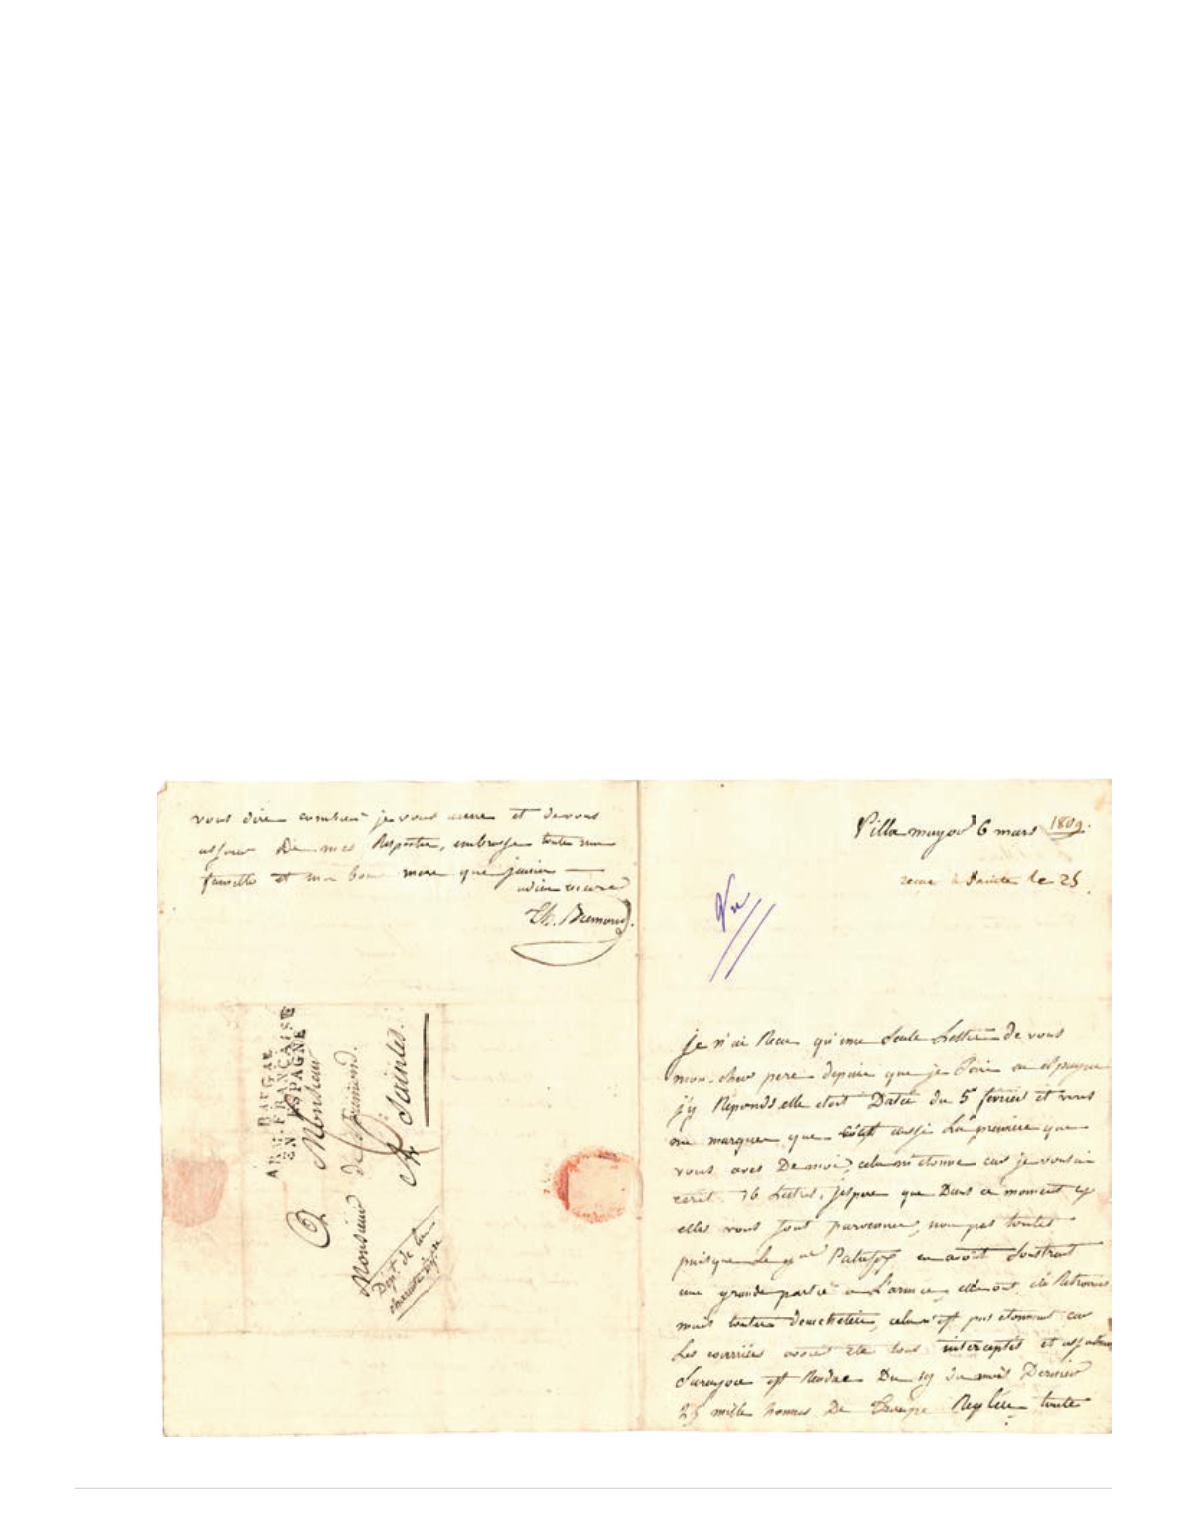 vous dire combien je vous aime et de vous
assurer De mes Respectes, embrasse toute ma
famille et ma bonne mere que j'aime
adieu
Th. Bremond
BAU GAL
ARM. FRANÇAISE
EN ESPAGNE
Monsieur
Monsieur de Bremond.
A Saintes.
Dépt. de la
charente infre
Villa mayor 6 mars 1809.
recue à Sainte le 25
Vu
je n'ai Recu qu'une Seule Lettre de vous
mon cher pere depuis que je Suis en espagne
j'y Reponds, elle etoit Datée du 5 fevrier et vous
me marquez que c'est aussi La premiere que
vous avez De moi, cela m'etonne car je vous ai
ecrit 16 Lettres, j'espere que Dans ce moment cy
elles vous sont parvenues, non pas toutes
puisque Le gral Palafox en avoit Soustrait
une grande partie a L'armée, elles ont été Retrouvées
mais toutes decachetées, cela n'est pas etonnant car
Les courriers avoient ete tous interceptés et
Saragosse est Rendue Du 19 du mois Dernier
25 mille hommes De Troupe Reglée toute